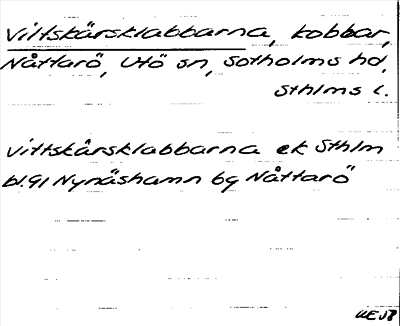 Vittskärsklabbarna, kobbar,
Nåttarö, Utö sn, Sotholms hd,
Sthlms l.
Vittskärsklabbarna ek Sthlm
bl.91 Nynäshamn bg Nåttarö